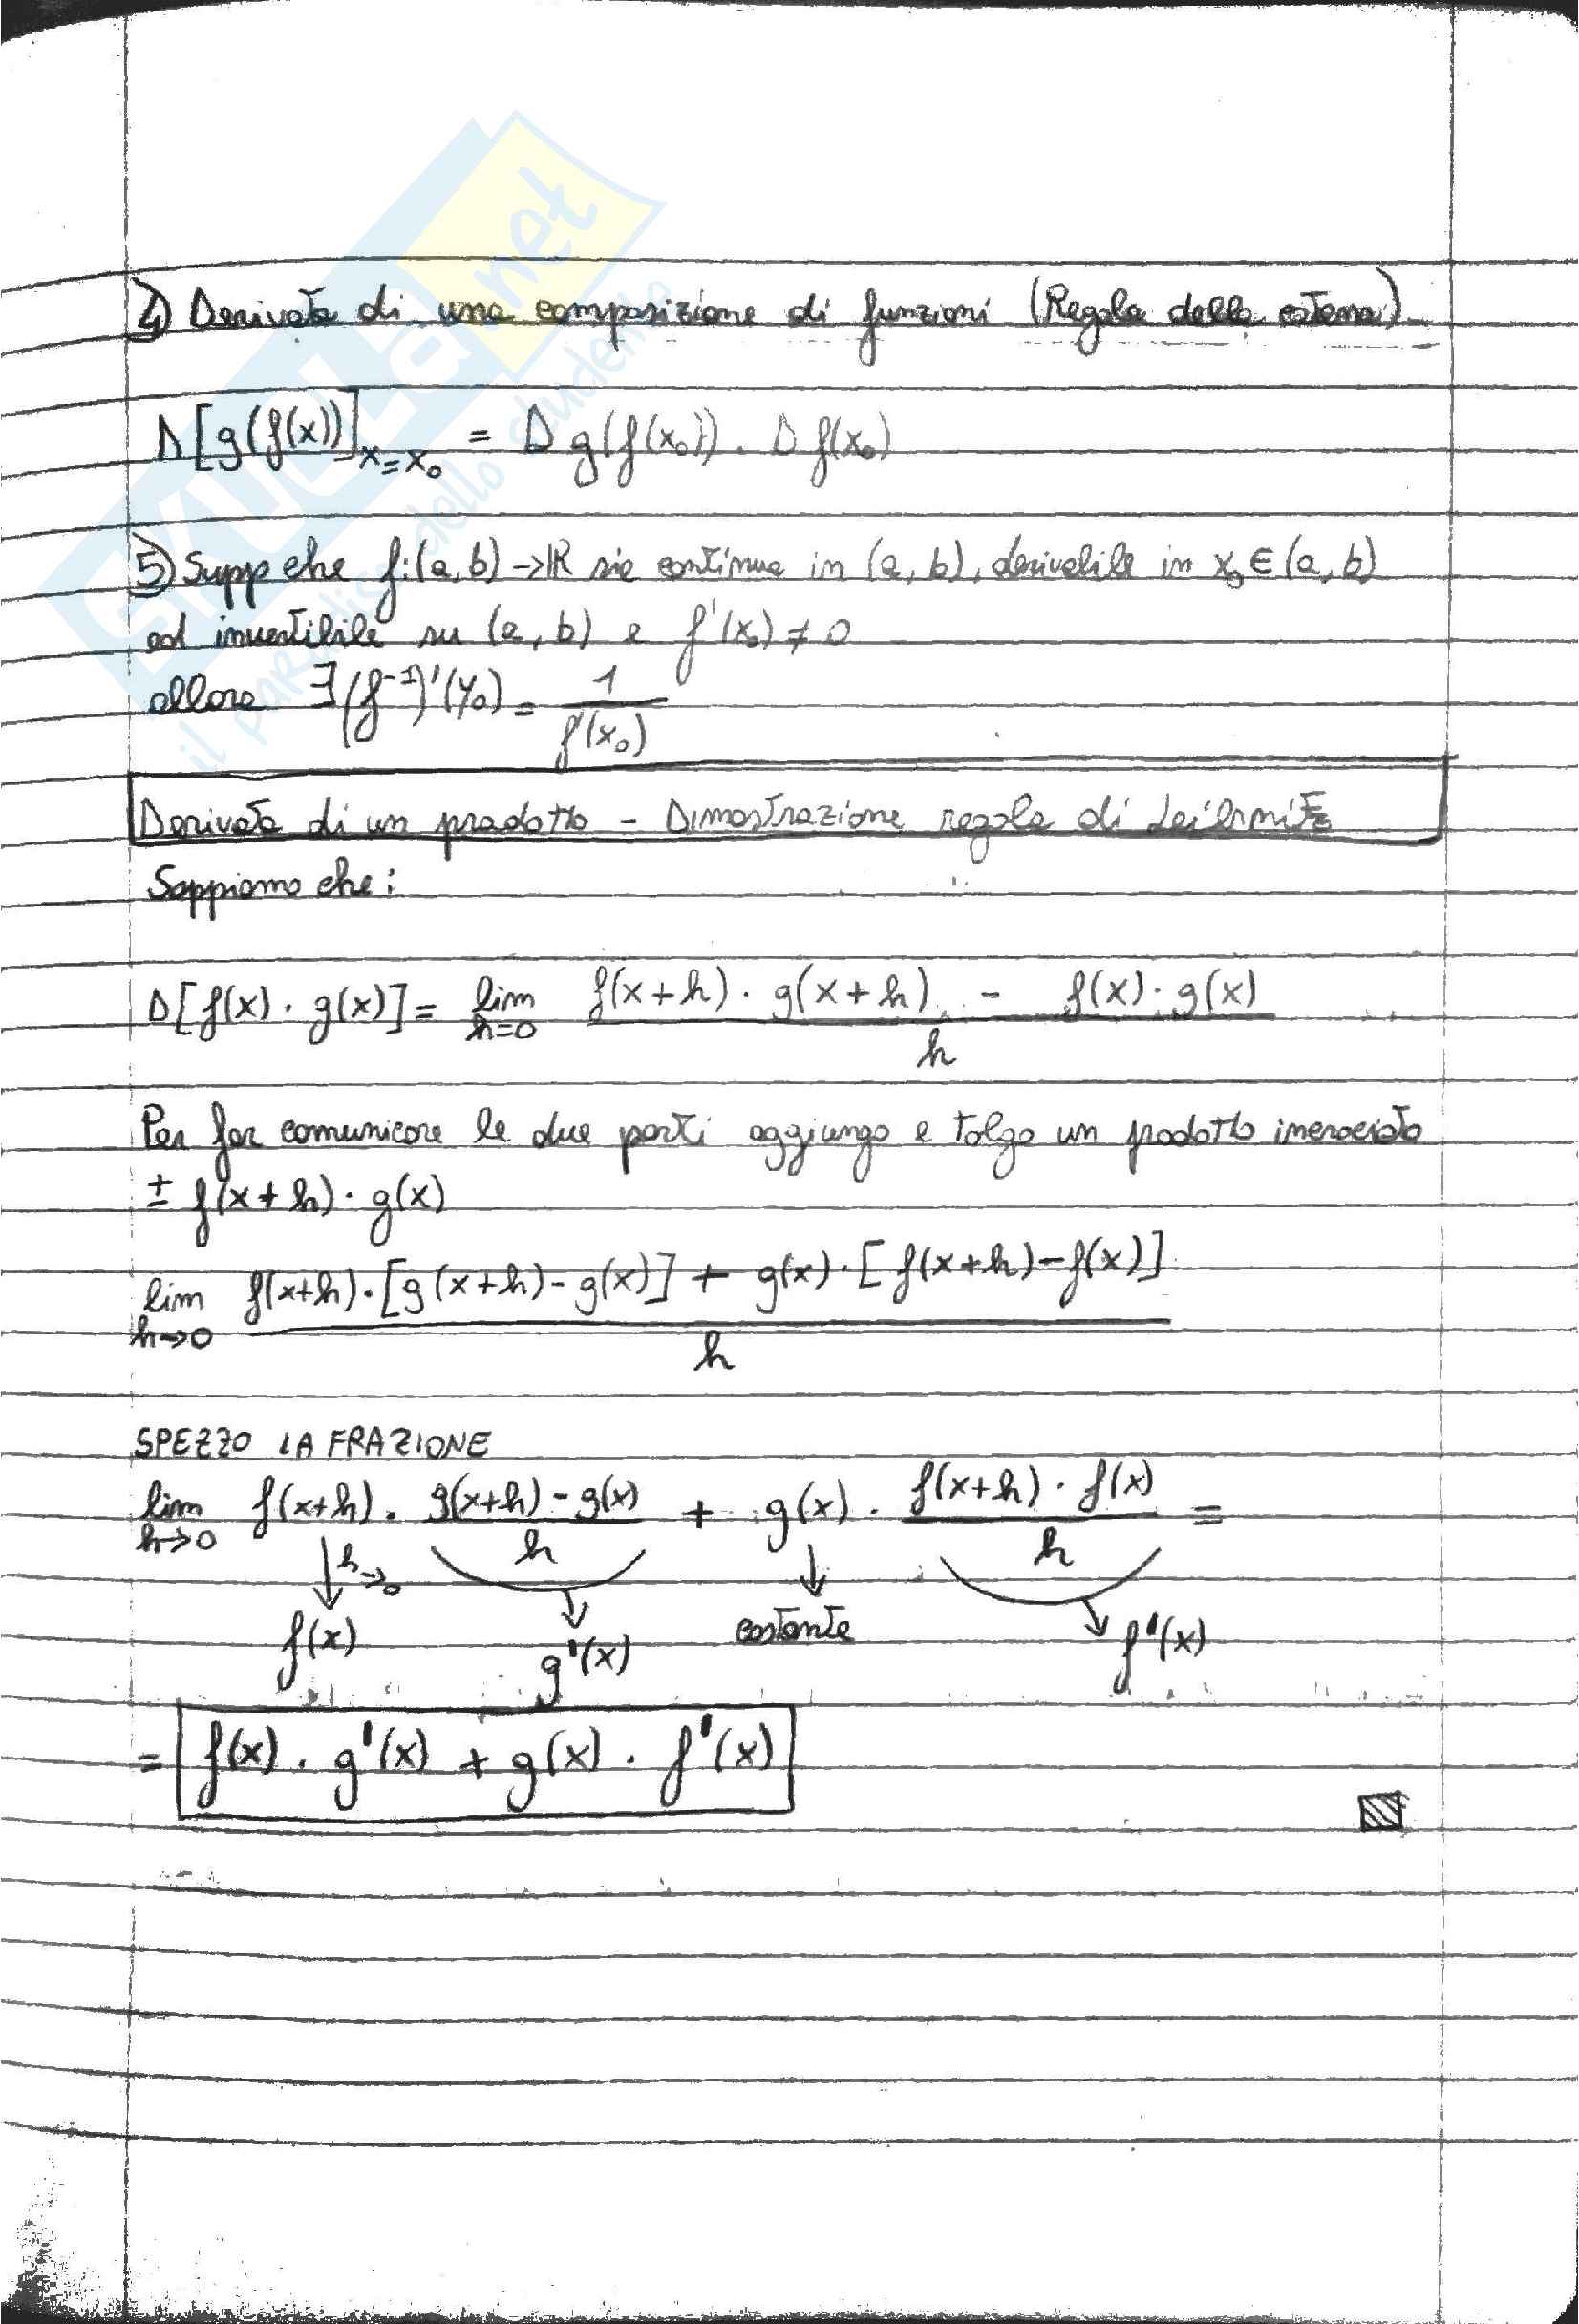 4) Derivata di una composizione di funzioni (Regola della catena)
D[g(f(x))]x=x₀ = D g(f(x₀)) · D f(x₀)
5) Supp che f:(a,b)→ℝ sia continua in (a,b), derivabile in x₀ ∈ (a,b)
ed invertibile su (a,b) e f'(x₀) ≠ 0
allora ∃(f⁻¹)'(y₀) = 1/f'(x₀)
Derivata di un prodotto - Dimostrazione regola di Leibnitz
Sappiamo che:
D[f(x) · g(x)] = lim h=0 f(x+h) · g(x+h) - f(x) · g(x) / h
Per far comunicare le due parti aggiungo e tolgo un prodotto incrociato
± f(x+h) · g(x)
lim h→0 f(x+h) · [g(x+h) - g(x)] + g(x) · [f(x+h) - f(x)] / h
SPEZZO LA FRAZIONE
lim h→0 f(x+h) · g(x+h) - g(x) / h + g(x) · f(x+h) · f(x) / h =
↓ h→0 ↓ ↓ ↓
f(x) g'(x) costante f'(x)
= f(x) · g'(x) + g(x) · f'(x)
SKUOLA.net
il paradiso dello studente